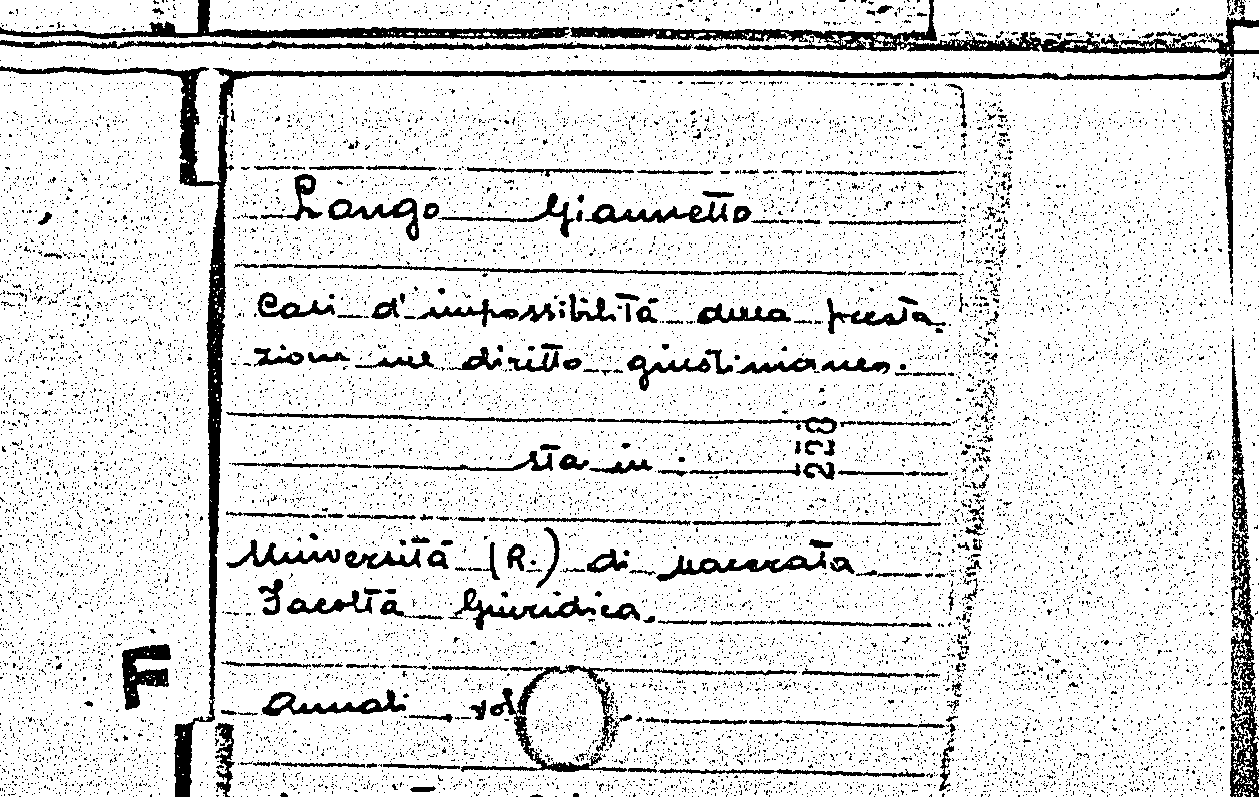 Longo Giannetto
Casi d'impossibilità della presta-
zione nel diritto giustinianeo.
sta in :
Università (R.) di Macerata
Facoltà Giuridica.
Annali vol
F